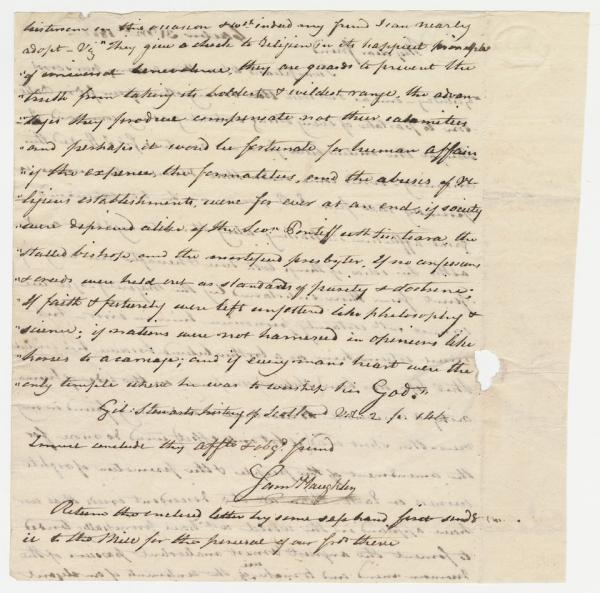 on the occasion & well indeed my friend I can nearly
adopt - Viz "They give a check to Religion in its happiest principle
"of universal benevolence, they are guards to prevent the
"truth from taking its boldest & wildest range, the advan-
"tages they produce compensate not their calamities
"and perhaps it would be fortunate for human affairs
"if the expence, the formalities, and the abuses of Re-
"ligious establishments were for ever at an end, if society
"were deprived alike of the Sovn Pontiff with his tiara, the
"stalled bishop, and the mortified presbyter, If no confessions
"& creeds were held out as standards of purity & doctrine;
"If faith & futurity were left unfettered like philosophy &
"science; if nations were not harnessed in opinions like
"horses to a carriage; and if every mans heart were the
"only temple where he was to worship his God."
Gil: Stewarts history of Scotland Vol. 2 p. 140
I must conclude thy affte & obgd friend
Saml Haughton
Return the enclosed letter by some safe hand first send
it to the Mill for the perusal of our frds there